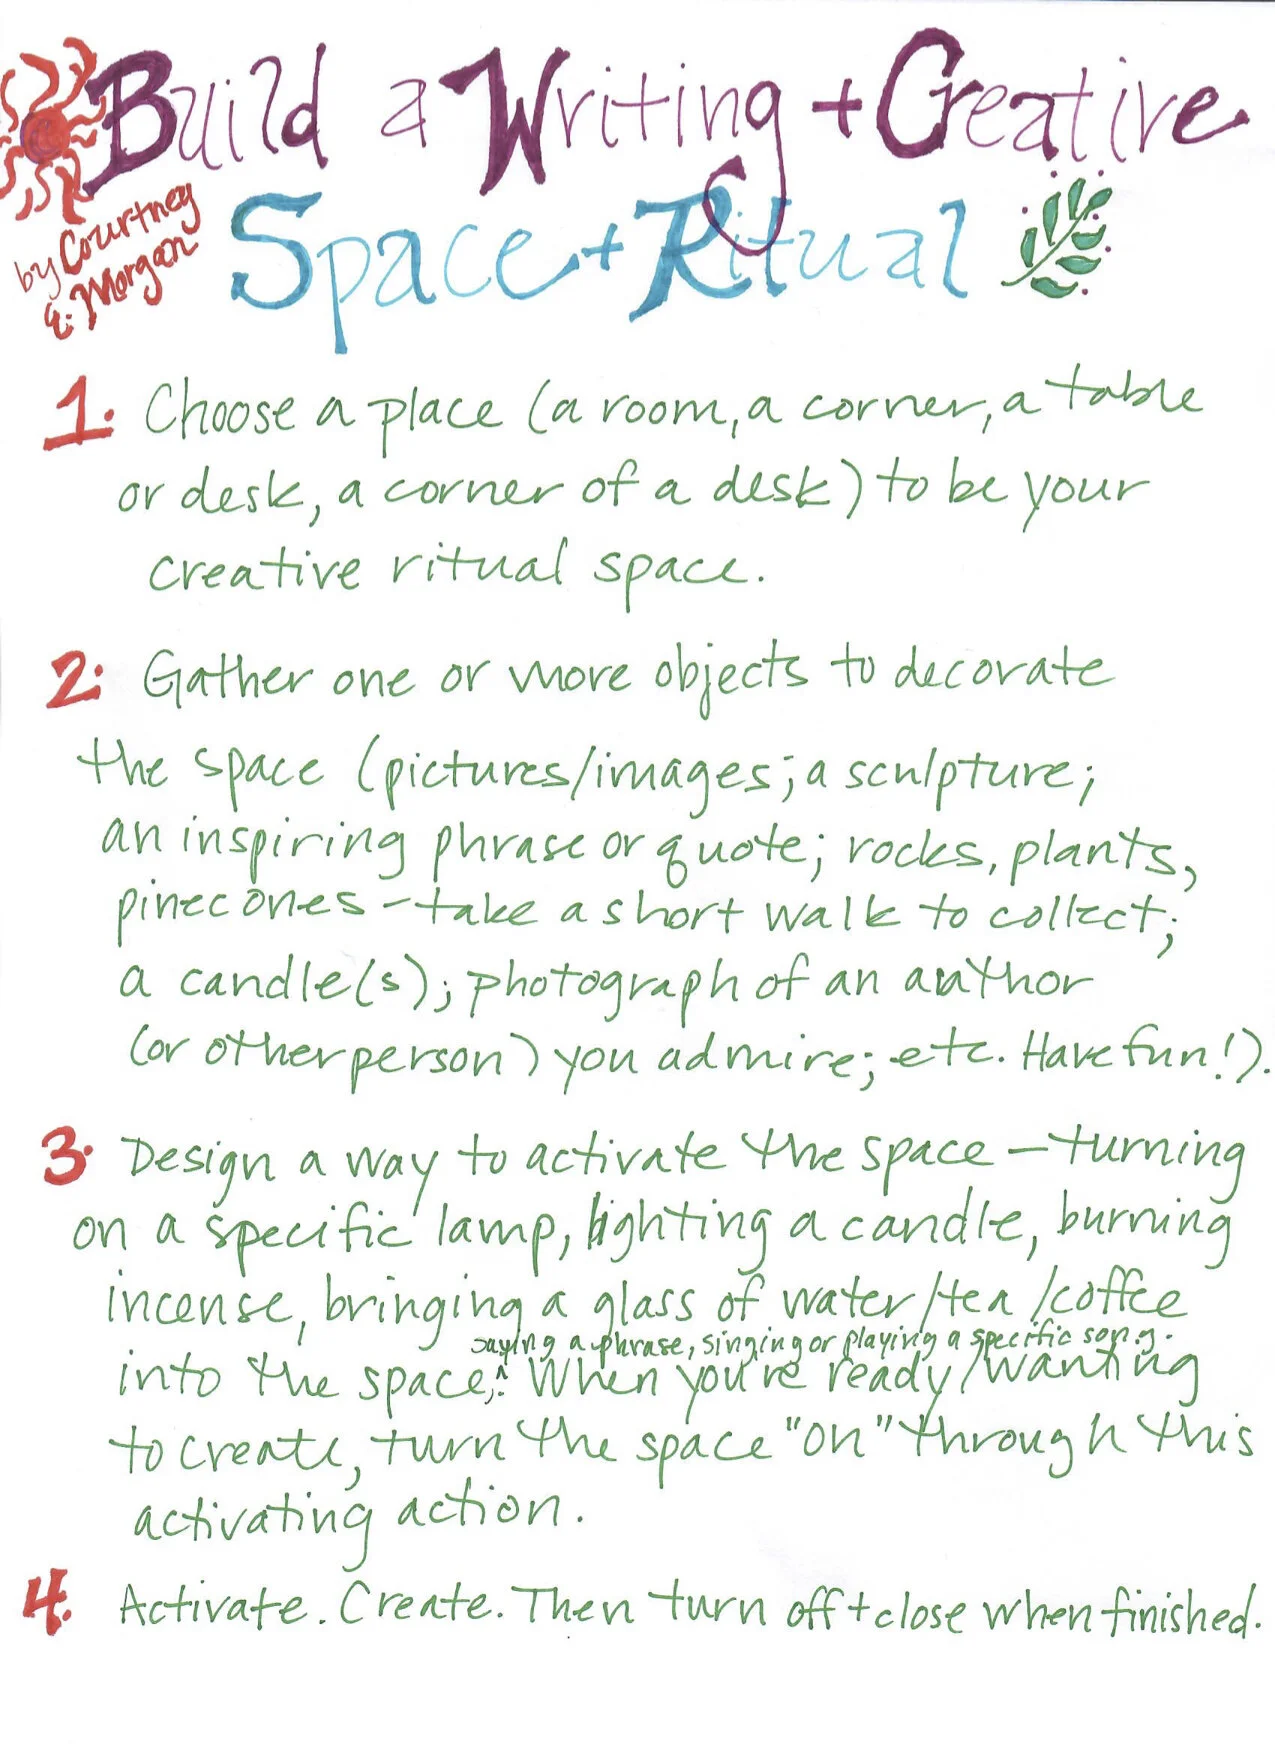 Build a Writing + Creative
Space + Ritual
by Courtney
E. Morgan
1. Choose a place (a room, a corner, a table
or desk, a corner of a desk) to be your
creative ritual space.
2. Gather one or more objects to decorate
the space (pictures/images; a sculpture;
an inspiring phrase or quote; rocks, plants,
pinecones - take a short walk to collect;
a candle(s); photograph of an author
(or other person) you admire; etc. Have fun!).
3. Design a way to activate the space - turning
on a specific lamp, lighting a candle, burning
incense, bringing a glass of water/tea/coffee
saying a phrase, singing or playing a specific song.
into the space,^. When you're ready/wanting
to create, turn the space "on" through this
activating action.
4. Activate. Create. Then turn off + close when finished.